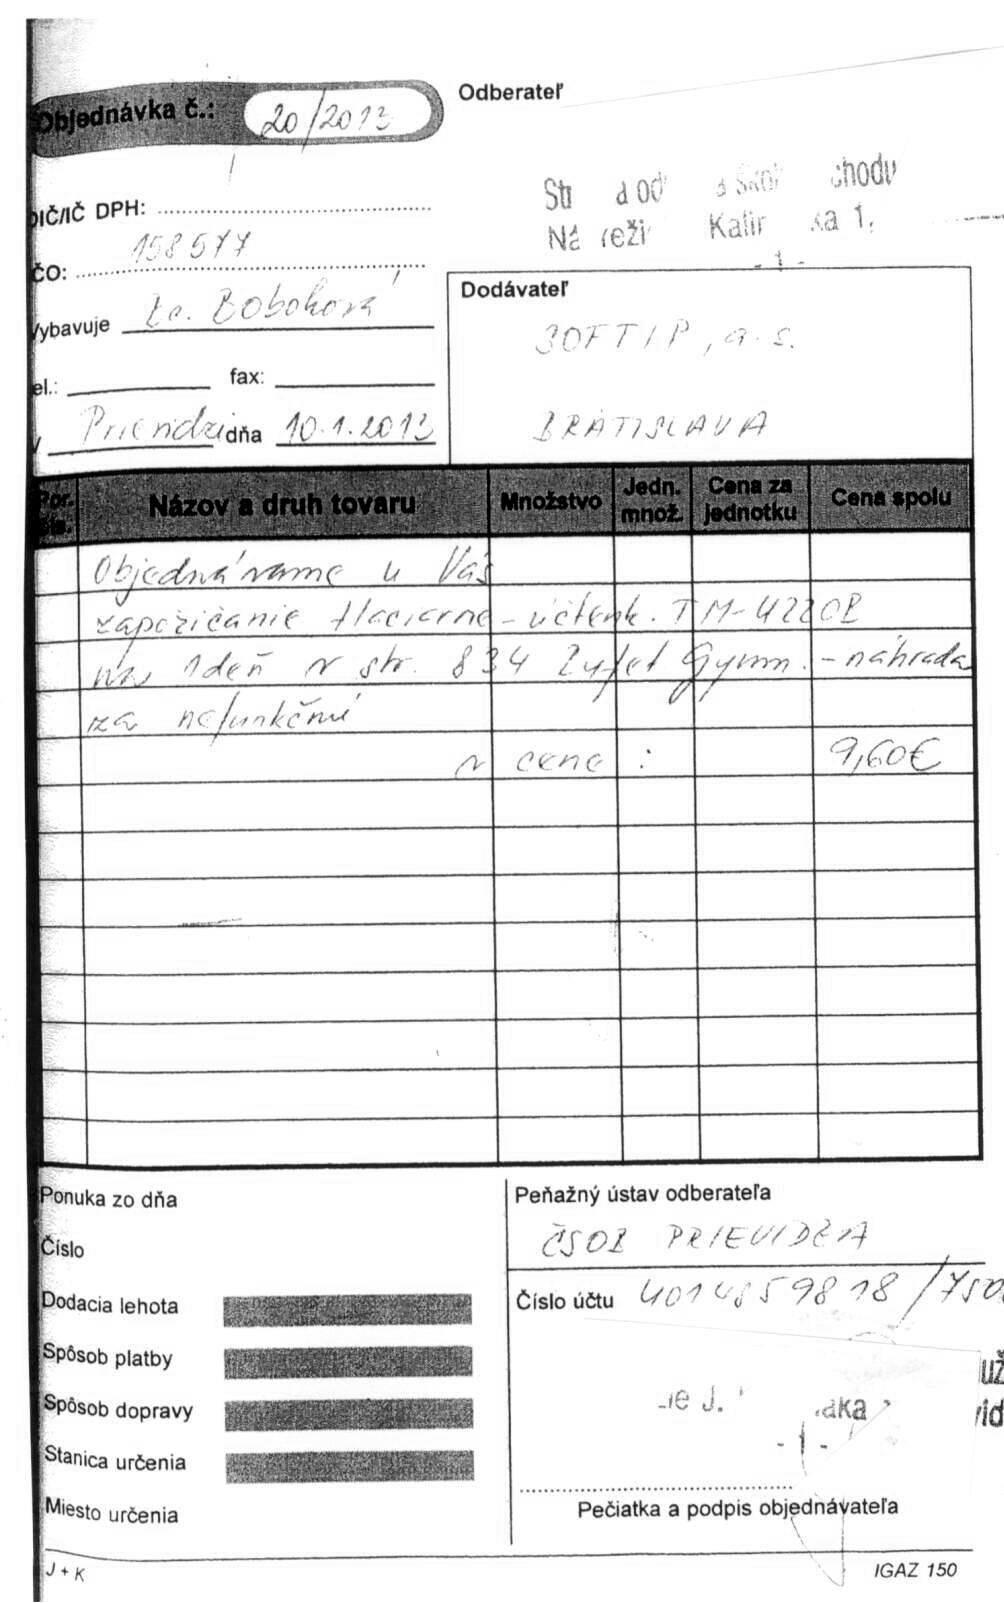 Objednávka č.: 20/2013
Odberateľ
DIČ/IČ DPH:
chodu
Kalin
1,
- 1 -
IČO: 158577
Vybavuje Boboková
Dodávateľ
SOFTIP, a.s.
BRATISLAVA
tel.: fax:
V Prievidzi dňa 10.1.2013
Por. čís. Názov a druh tovaru Množstvo Jedn. množ. Cena za jednotku Cena spolu
Objednávame u Vás
zapožičanie tlačiarne - účtenk. TM-U220B
na 1 deň v str. 834 Gymn. - náhrada
za nefunkčnú
v cene : 9,60€
Ponuka zo dňa
Číslo
Dodacia lehota
Spôsob platby
Spôsob dopravy
Stanica určenia
Miesto určenia
Peňažný ústav odberateľa
ČSOB PRIEVIDZA
Číslo účtu 4014859818/750
- 1 -
Pečiatka a podpis objednávateľa
J + K
IGAZ 150